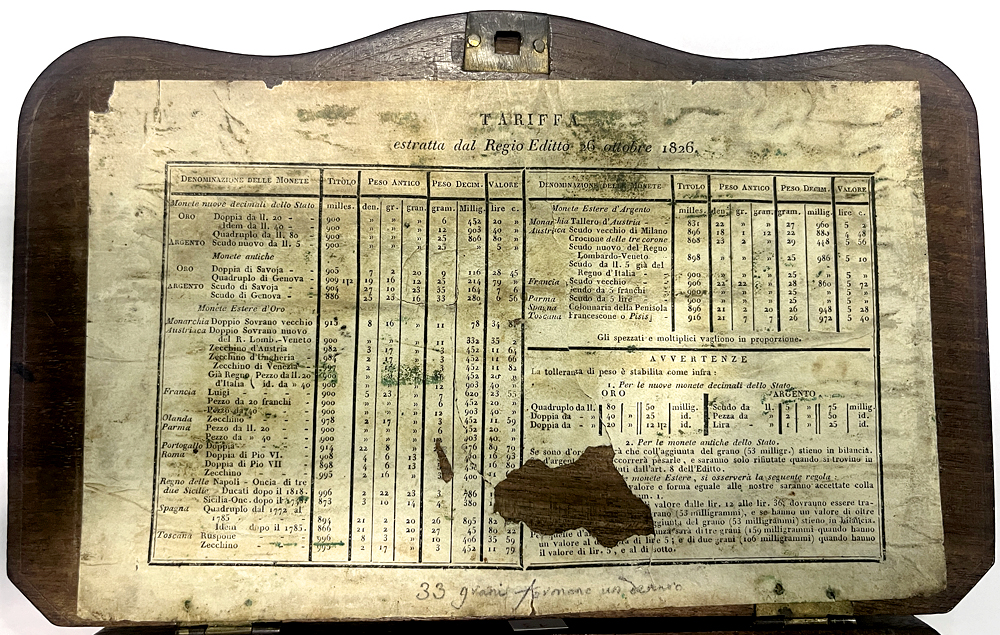 TARIFFA
estratta dal Regio Editto 26 ottobre 1826.
DENOMINAZIONE DELLE MONETE TITOLO PESO ANTICO PESO DECIM. VALORE
Monete nuove decimali dello Stato milles. den. gr. gran. gram. Millig. lire c.
ORO Doppia da ll. 20 - - 900 » » » 6 452 20 »
Idem da ll. 40 - - 900 » » » 12 903 40 »
Quadruplo da ll. 80 - 900 » » » 25 806 80 »
ARGENTO Scudo nuovo da ll. 5 - 900 » » » 25 » 5 »
Monete antiche
ORO Doppia di Savoja - - 905 7 2 20 9 116 28 45
Quadruplo di Genova - 909 1|2 19 16 12 25 214 79 »
ARGENTO Scudo di Savoja - - 904 27 10 23 35 164 7 6
Scudo di Genova - - 886 25 23 16 33 280 6 56
Monete Estere d'Oro
Monarchia Doppio Sovrano vecchio 915 8 16 » 11 78 34
Austriaca Doppio Sovrano nuovo
del R. Lomb.-Veneto 900 » » » 11 332 35
Zecchino d'Austria 3 17 » 3 452 11 64
Zecchino d'Ungheria 2 17 » 3 452 11 66
Zecchino di Venezia 2 17 » 3 452 11 82
Già Regno Pezzo da ll. 20
d'Italia id. da » 40 900
Francia Luigi - - 5 23 » 7 620 23 55
Pezzo da 20 franchi 900 » » » 6 452 20 »
Pezzo da 40 - 900 » » » 12 903 40 »
Olanda Zecchino - - 978 2 17 » 3 452 11 59
Parma Pezzo da ll. 20 - - 900
Pezzo da » 40 - - 900
Portogallo Doppia - - 914 22 8 »
Roma Doppia di Pio VI. - 908 4 6 13
Doppia di Pio VII - 898 4 6 13
Zecchino - - 2 16 »
Regno delle Napoli - Oncia di tre
due Sicilie Ducati dopo il 1818. 996 2 22 23 3 786
Sicilia-Onc. dopo il 873 3 10 14 4 380
Spagna Quadruplo dal 1772 al
1785 - - 894 21 2 20 26 895 82
Idem dopo il 1785. 866 21 2 20 27 45
Toscana Ruspone - - 996 8 3 » 10 406 35 59
Zecchino - - 2 17 » 3 452 11 79
DENOMINAZIONE DELLE MONETE TITOLO PESO ANTICO PESO DECIM. VALORE
Monete Estere d'Argento milles. den. gr. gram. gram. millig. lire c.
Monarchia Tallero d'Austria 22 » » 27 960 5 2
Austriaca Scudo vecchio di Milano 896 18 1 12 22 4 48
Crocione delle tre corone 868 23 2 » 29 448 5 56
Scudo nuovo del Regno
Lombardo-Veneto 898 » » » 25 986 5 10
Scudo da ll. 5 già del
Regno d'Italia - 900 » » » 25 » 5 »
Francia Scudo vecchio 906 22 22 » 28 860 5 72
Scudo da 5 franchi 900 » » » 25 » 5 »
Parma Scudo da 5 lire 900 » » » 25 » 5 »
Spagna Colonnaria della Penisola 896 21 2 20 26 948 5 28
Toscana Francescone o Pisis 916 21 7 7 26 972 5 40
Gli spezzati e moltiplici vagliono in proporzione.
AVVERTENZE
La tolleranza di peso è stabilita come infra :
1. Per le nuove monete decimali dello Stato.
ORO ARGENTO
Quadruplo da ll. 80 » 50 millig. Scudo da ll. 5 » 75 millig.
Doppia da » 40 » 25 id. Pezzo da » 2 » 50 id.
Doppia da » 20 » 12 1|2 id. Lira - - 1 » 25 id.
2. Per le monete antiche dello Stato.
Se sono d'oro che coll'aggiunta del grano (53 milligr.) stieno in bilancia.
d'argento occorrerà pesarle, e saranno solo rifiutate quando si trovino in
dall'art. 8 dell'Editto.
monete Estere, si osserverà la seguente regola :
valore e forma eguale alle nostre saranno accettate colla
m. 1.
valore dalle lir. 12 alle lir. 36, dovranno essere tra-
grano (53 milligrammi), e se hanno un valore di oltre
aggiunta del grano (53 milligrammi) stieno in bilancia.
Per quelle d'argento sarà di tre grani (159 milligrammi) quando hanno
un valore al di lir. 5 ; e di due grani (106 milligrammi) quando hanno
il valore di lir. 5, e al di sotto.
33 grani formano un denaro